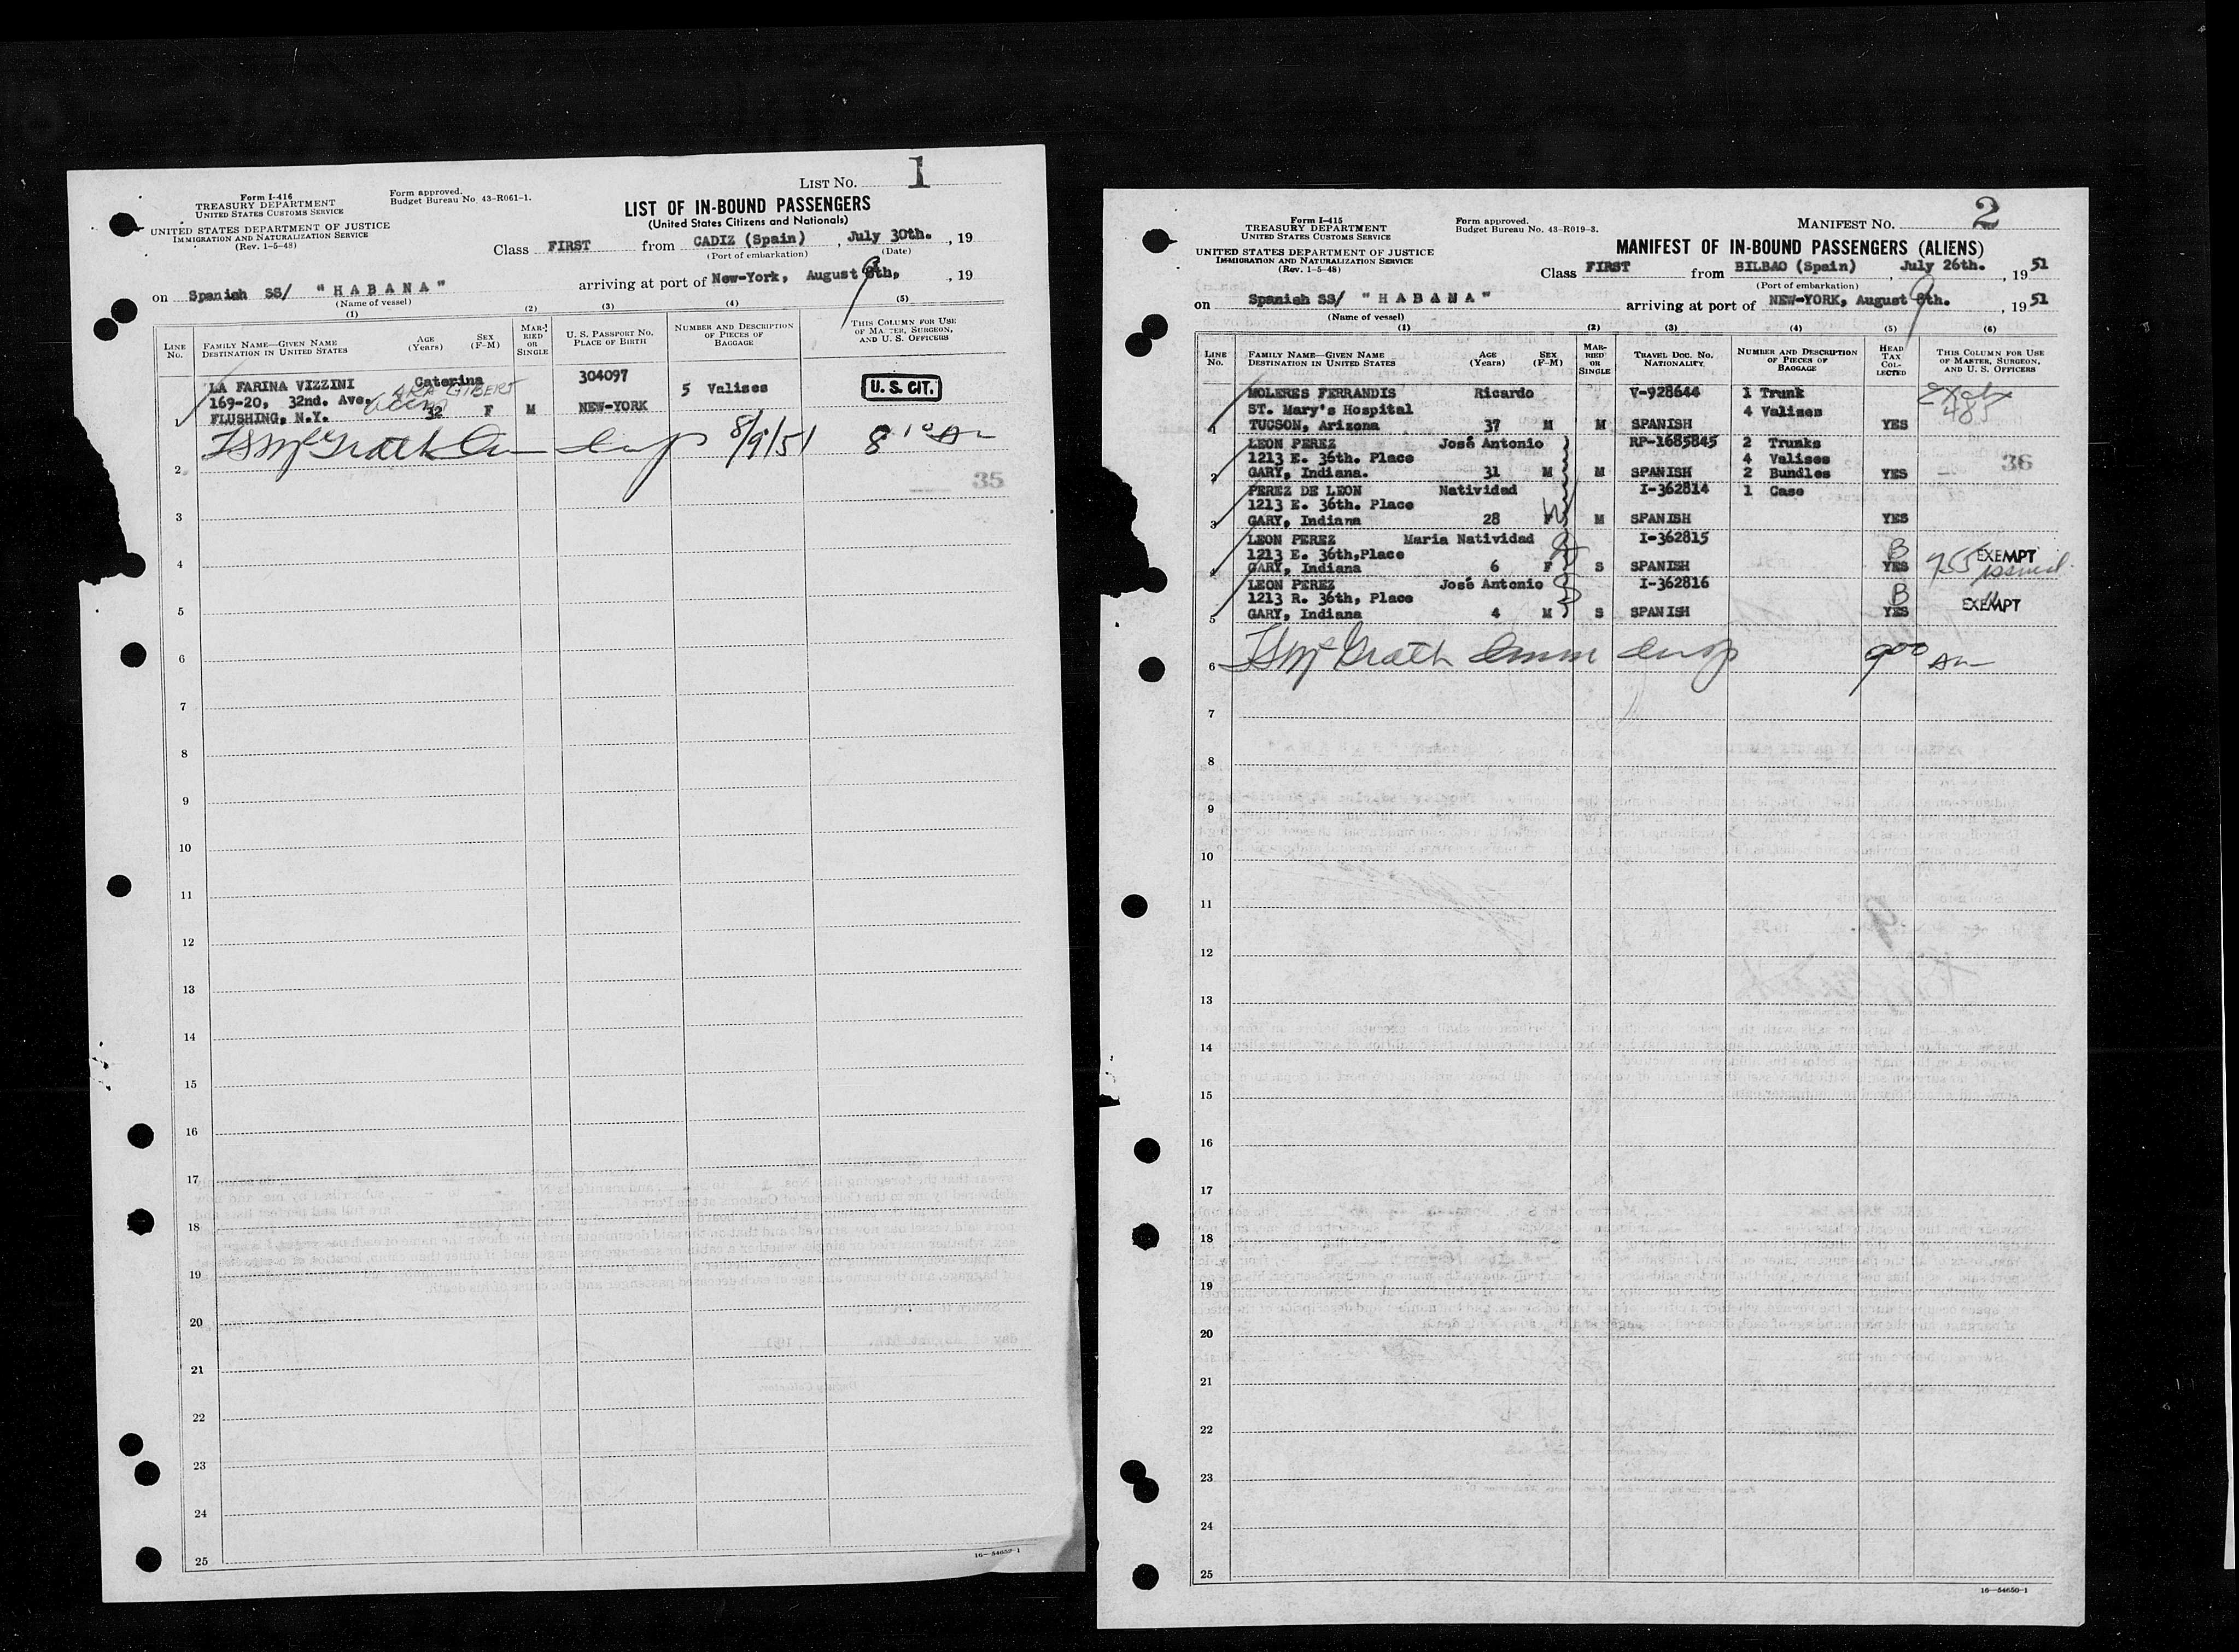 LIST NO. 1
Form I-416
TREASURY DEPARTMENT
UNITED STATES CUSTOMS SERVICE
UNITED STATES DEPARTMENT OF JUSTICE
IMMIGRATION AND NATURALIZATION SERVICE
(Rev. 1-5-48)
Form approved.
Budget Bureau No. 43-R061-1.
LIST OF IN-BOUND PASSENGERS
(United States Citizens and Nationals)
Class FIRST from CADIZ (Spain), July 30th., 19
(Port of embarkation) (Date)
on Spanish SS/ "HABANA" arriving at port of New-York, August 9 8th, , 19
(Name of vessel)
(1) (2) (3) (4) (5)
LINE No. FAMILY NAME—GIVEN NAME DESTINATION IN UNITED STATES AGE (Years) SEX (F-M) MARRIED OR SINGLE U. S. PASSPORT NO. PLACE OF BIRTH NUMBER AND DESCRIPTION OF PIECES OF BAGGAGE THIS COLUMN FOR USE OF MASTER, SURGEON, AND U. S. OFFICERS
LA FARINA VIZZINI Caterina 304097
AKA GILBERT
169-20, 32nd. Ave, 5 Valises U. S. CIT.
1 FLUSHING, N.Y. 32 F M NEW-YORK
TS McGrath Insp 8/9/51 8 10 AM
2
35
3
4
5
6
7
8
9
10
11
12
13
14
15
16
17
18
19
20
21
22
23
24
25
16—54652-1
Form I-415
TREASURY DEPARTMENT
UNITED STATES CUSTOMS SERVICE
UNITED STATES DEPARTMENT OF JUSTICE
IMMIGRATION AND NATURALIZATION SERVICE
(Rev. 1-5-48)
Form approved.
Budget Bureau No. 43-R019-3.
MANIFEST NO. 2
MANIFEST OF IN-BOUND PASSENGERS (ALIENS)
Class FIRST from BILBAO (Spain), July 26th. , 1951
(Port of embarkation)
on Spanish SS/ "HABANA" arriving at port of NEW-YORK, August 9 8th. , 1951
(Name of vessel)
(1) (2) (3) (4) (5) (6)
LINE No. FAMILY NAME—GIVEN NAME DESTINATION IN UNITED STATES AGE (Years) SEX (F-M) MARRIED OR SINGLE TRAVEL DOC. NO. NATIONALITY NUMBER AND DESCRIPTION OF PIECES OF BAGGAGE HEAD TAX COLLECTED THIS COLUMN FOR USE OF MASTER, SURGEON, AND U. S. OFFICERS
MOLERES FERRANDIS Ricardo V-928644 1 Trunk
ST. Mary's Hospital 4 Valises 485
1 TUCSON, Arizona 37 M M SPANISH YES
LEON PEREZ José Antonio RP-1685845 2 Trunks
1213 E. 36th. Place 4 Valises 36
2 GARY, Indiana. 31 M M SPANISH 2 Bundles YES
PEREZ DE LEON Natividad I-362814 1 Case
1213 E. 36th. Place
3 GARY, Indiana 28 F M SPANISH YES
LEON PEREZ Maria Natividad I-362815
1213 E. 36th,Place B EXEMPT
4 GARY, Indiana 6 F S SPANISH YES issued
LEON PEREZ José Antonio I-362816
1213 R. 36th, Place B EXEMPT
5 GARY, Indiana 4 M S SPANISH YES
6 TS McGrath Imm Insp 9 00 AM
7
8
9
10
11
12
13
14
15
16
17
18
19
20
21
22
23
24
25
16—54650-1